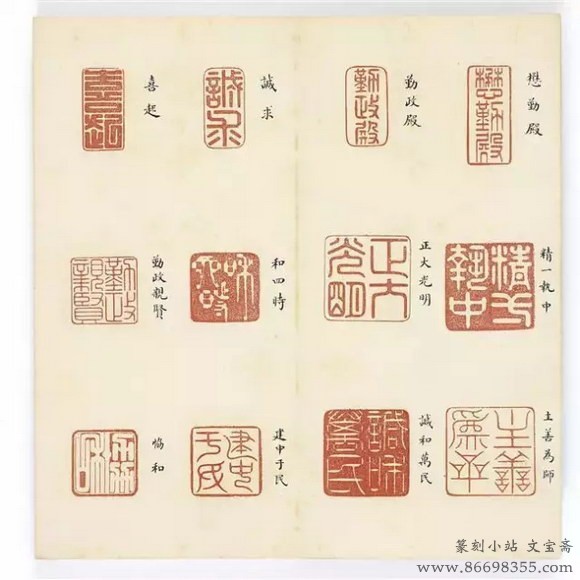 懋勤殿
勤政殿
誠求
喜起
精一執中
正大光明
和四時
勤政親賢
主善為師
誠和萬民
建中于民
恊和
篆刻小站 文宝斋
www.86698355.com